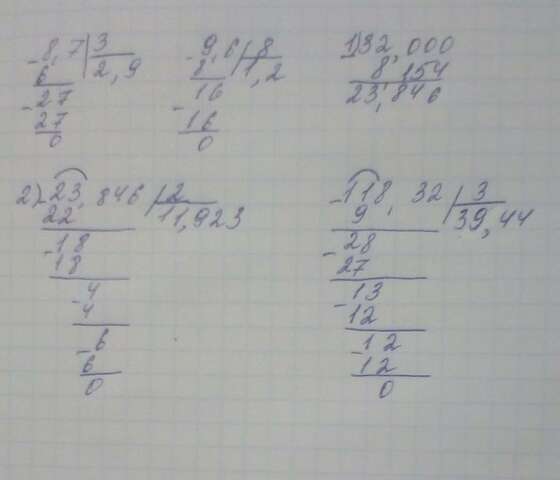 8,7 | 3
6 | 2,9
27
27
0
9,6 | 8
8 | 1,2
16
16
0
1) 32,000
8,154
23,846
2) 23,846 | 2
22 | 11,923
18
18
4
4
6
6
0
118,32 | 3
9 | 39,44
28
27
13
12
12
12
0